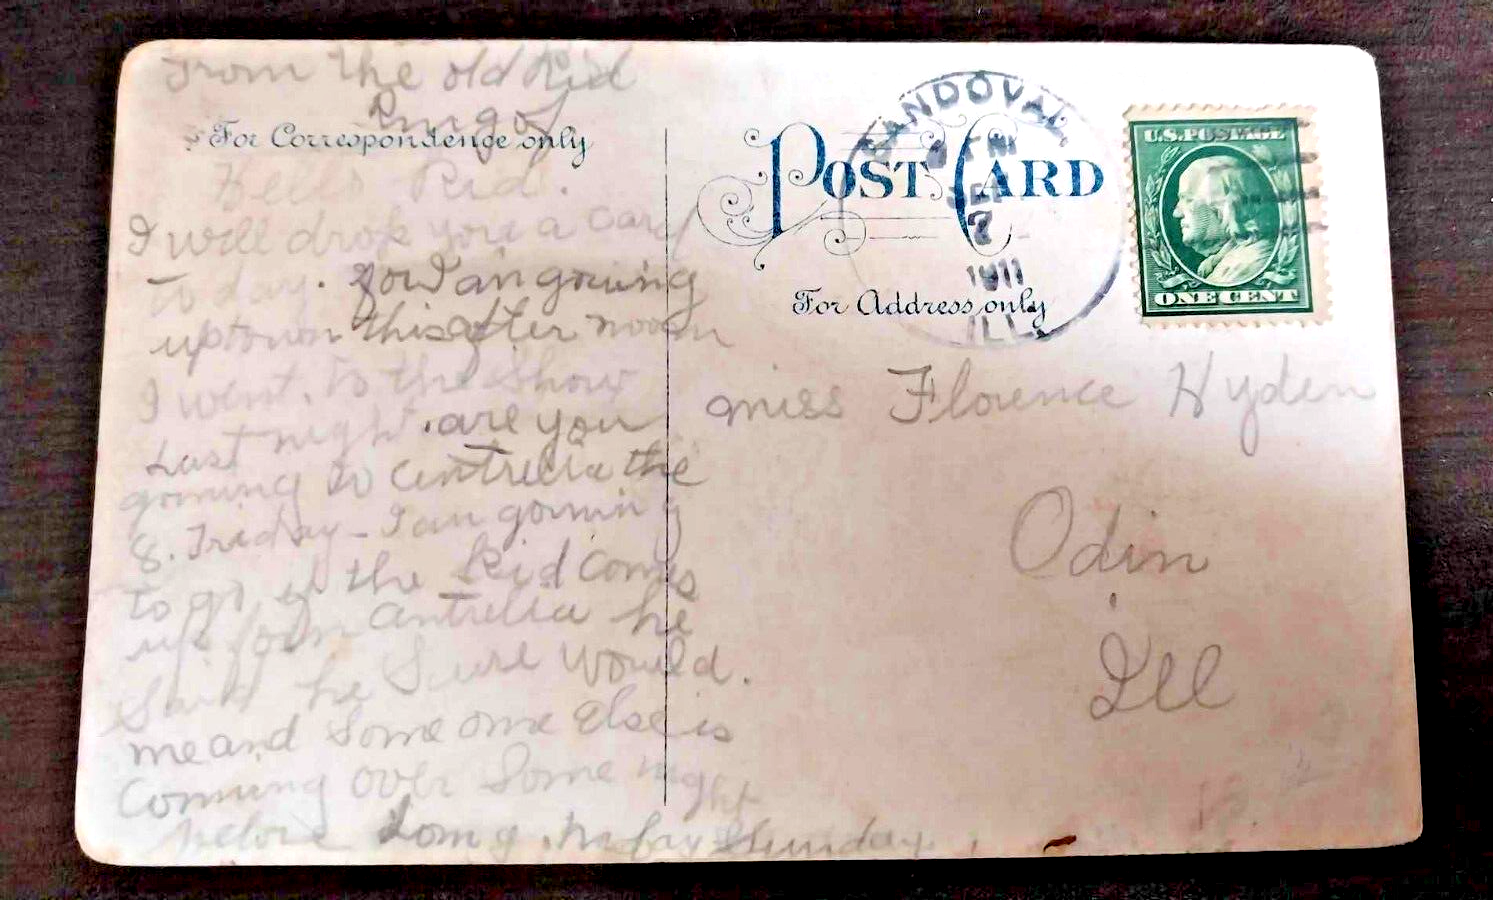 From the old Kid
For Correspondence only
Hello Kid.
I will drop you a card
today. for I am goning
uptown this after noon
I went. to the Show
Last night. are you
goning to Centrelia the
8. Friday - I am gonning
to go if the Kid comes
up from Centrelia he
Said he Sure would.
me and Some one Else is
Comming over Some night
before Long.
POST CARD
For Address only
SANDOVAL
PM
SEP
7
1911
ILL.
U.S. POSTAGE
ONE CENT
miss Florence Hyden
Odin
Ill